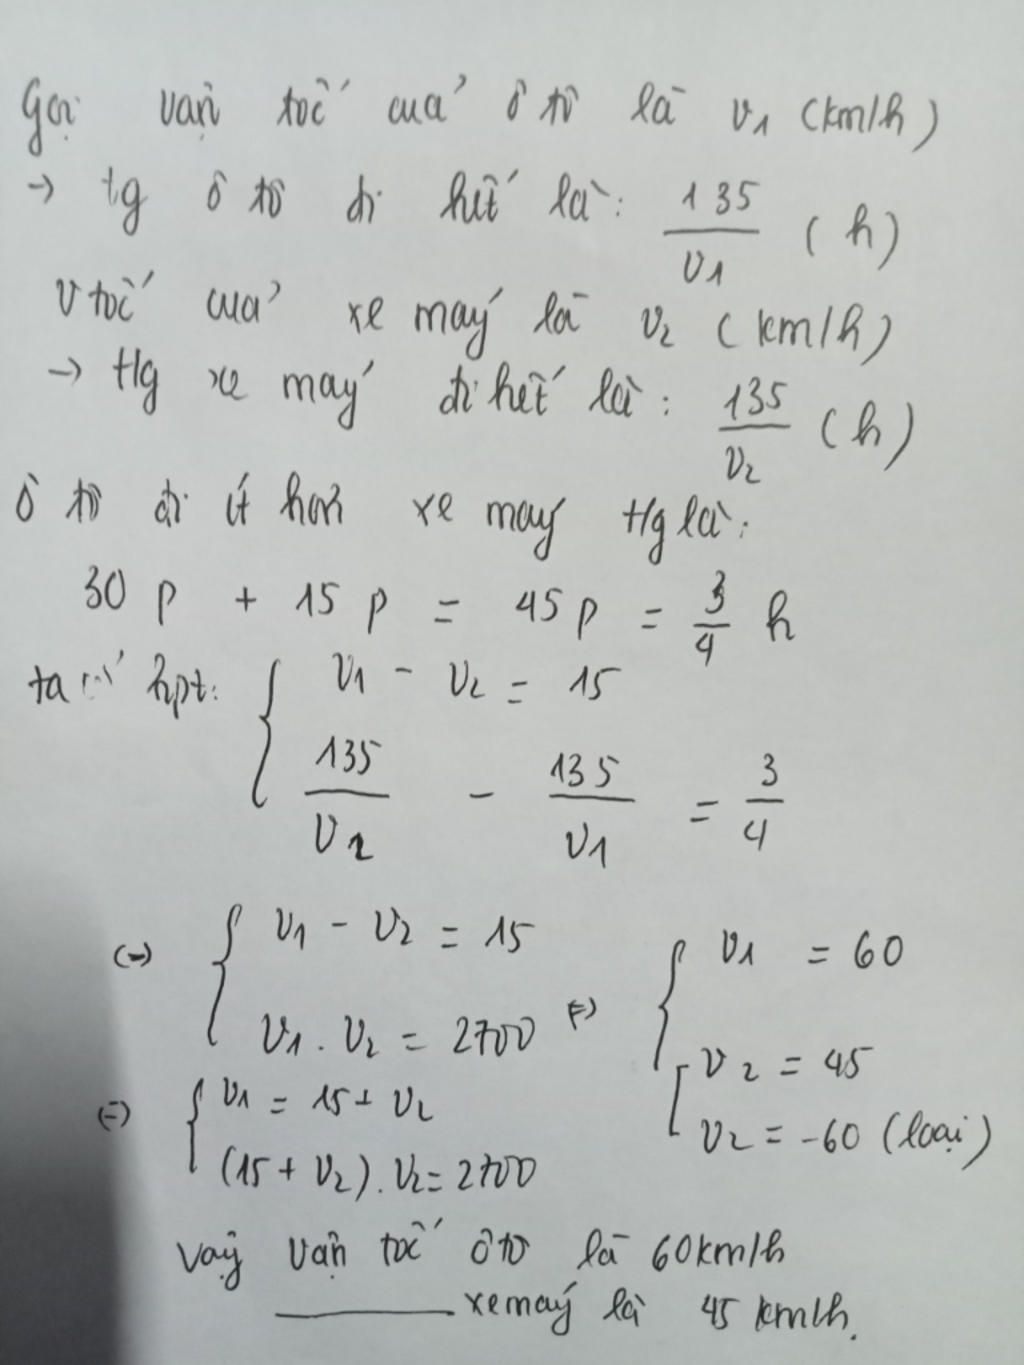 Gọi vận tốc của ô tô là v₁ (km/h)
→ tg ô tô đi hết là: 135/v₁ (h)
v tốc của xe máy là v₂ (km/h)
→ Hg xe máy đi hết là: 135/v₂ (h)
ô tô đi ít hơn xe máy Hg là:
30 p + 15 p = 45 p = 3/4 h
ta có hpt: { v₁ - v₂ = 15
135/v₂ - 135/v₁ = 3/4
(=) { v₁ - v₂ = 15
v₁ . v₂ = 2700
(=) { v₁ = 15 + v₂
(15 + v₂) . v₂ = 2700
(=) { v₁ = 60
[ v₂ = 45
v₂ = -60 (loại)
Vậy vận tốc ô tô là 60km/h
_______ xe máy là 45 km/h.